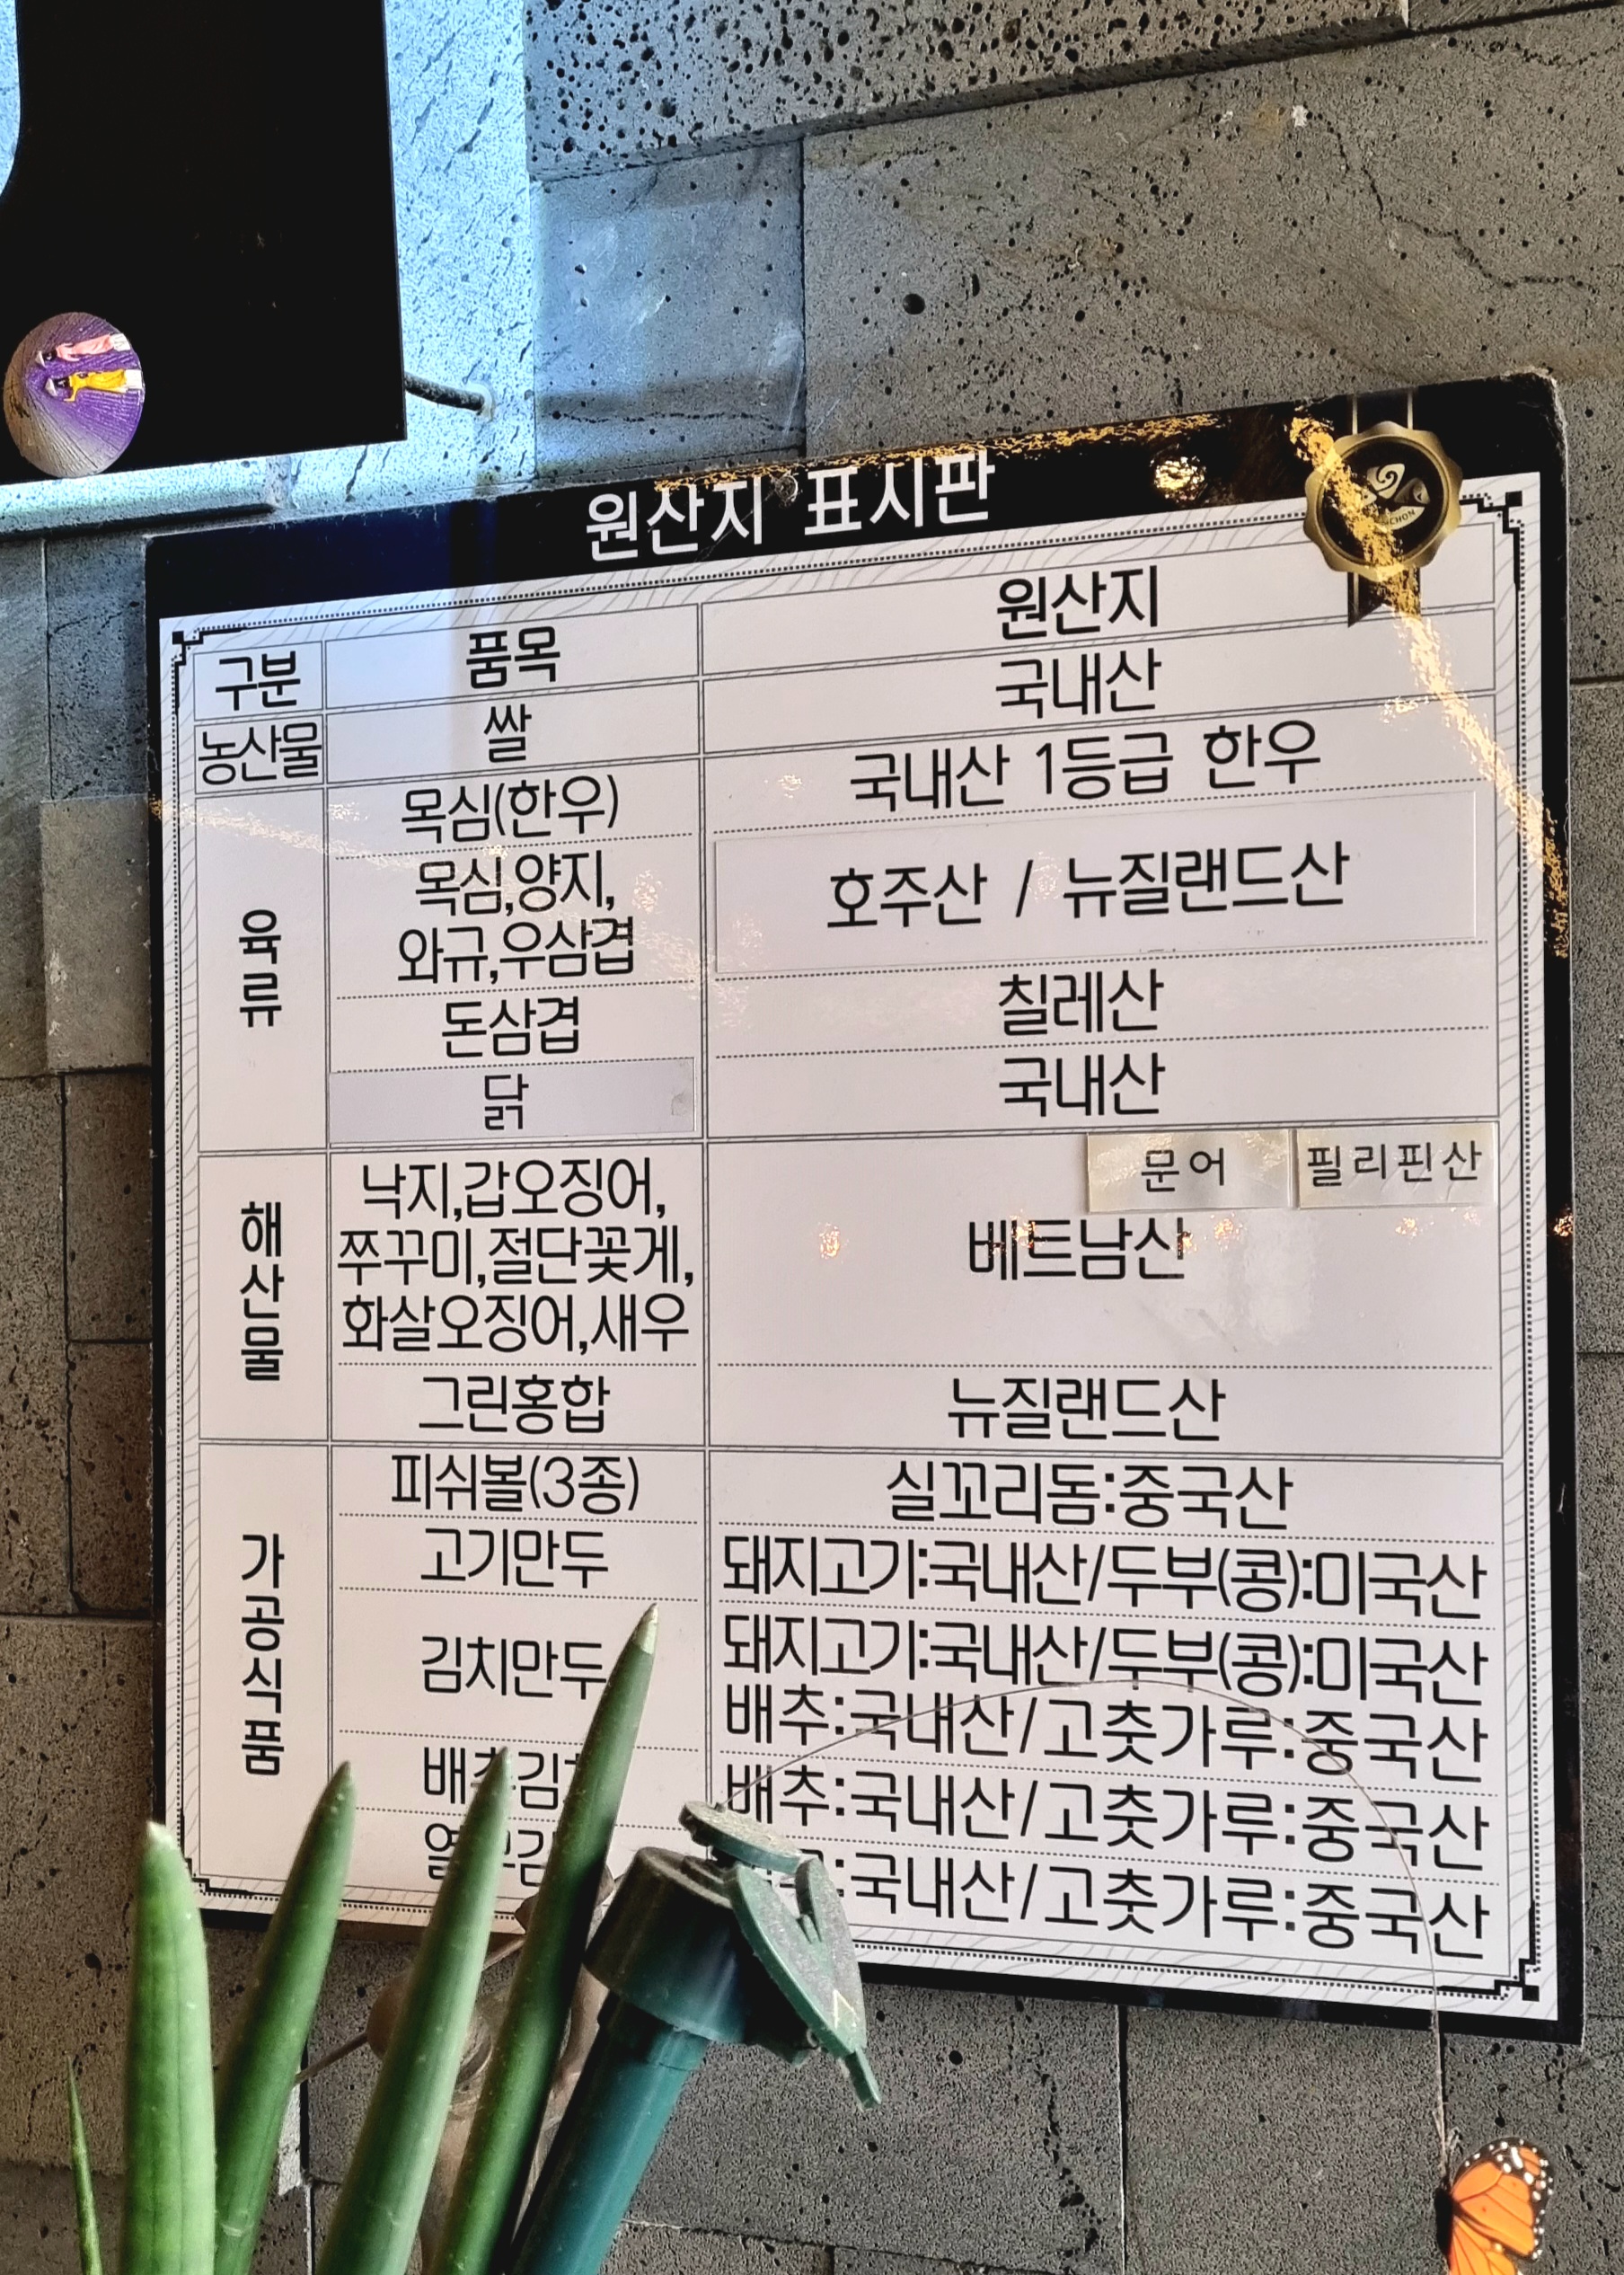 원산지 표시판
구분 품목 원산지
농산물 쌀 국내산
육류
목심(한우) 국내산 1등급 한우
목심,양지,
와규,우삼겹
호주산 / 뉴질랜드산
돈삼겹 칠레산
닭 국내산
해산물
낙지,갑오징어,
쭈꾸미,절단꽃게,
화살오징어,새우
문어 필리핀산
베트남산
그린홍합 뉴질랜드산
가공식품
피쉬볼(3종) 실꼬리돔:중국산
고기만두 돼지고기:국내산/두부(콩):미국산
김치만두
돼지고기:국내산/두부(콩):미국산
배추:국내산/고춧가루:중국산
배추김치 배추:국내산/고춧가루:중국산
국내산/고춧가루:중국산